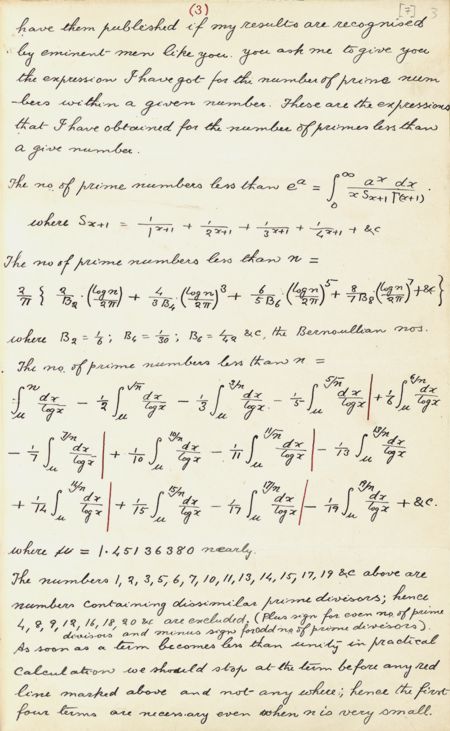 (3) [7] 3
have them published if my results are recognised
by eminent men like you. you ask me to give you
the expression I have got for the number of prime num
-bers within a given number. These are the expressions
that I have obtained for the number of primes less than
a give number.
The no. of prime numbers less than e^a = ∫_0^∞ a^x dx / (x S_{x+1} Γ(x+1)).
where S_{x+1} = 1/1^{x+1} + 1/2^{x+1} + 1/3^{x+1} + 1/4^{x+1} + &c
The no of prime numbers less than n =
2/π { 2/B_2 · (log n/2π) + 4/3B_4 · (log n/2π)^3 + 6/5B_6 · (log n/2π)^5 + 8/7B_8 (log n/2π)^7 + &c }
where B_2 = 1/6; B_4 = 1/30; B_6 = 1/42 &c, the Bernoullian nos.
The no. of prime numbers less than n =
∫_μ^n dx/log x − 1/2 ∫_μ^{√n} dx/log x − 1/3 ∫_μ^{3√n} dx/log x − 1/5 ∫_μ^{5√n} dx/log x | + 1/6 ∫_μ^{6√n} dx/log x
− 1/7 ∫_μ^{7√n} dx/log x | + 1/10 ∫_μ^{10√n} dx/log x − 1/11 ∫_μ^{11√n} dx/log x | − 1/13 ∫_μ^{13√n} dx/log x
+ 1/14 ∫_μ^{14√n} dx/log x | + 1/15 ∫_μ^{15√n} dx/log x − 1/17 ∫_μ^{17√n} dx/log x | − 1/19 ∫_μ^{19√n} dx/log x + &c.
where μ = 1.45136380 nearly.
The numbers 1, 2, 3, 5, 6, 7, 10, 11, 13, 14, 15, 17, 19 &c above are
numbers containing dissimilar prime divisors; hence
4, 8, 9, 12, 16, 18, 20 &c are excluded. (Plus sign for even no. of prime
divisors and minus sign for odd no. of prime divisors).
As soon as a term becomes less than unity in practical
calculation we should stop at the term before any red
line marked above and not any where; hence the first
four terms are necessary even when n is very small.